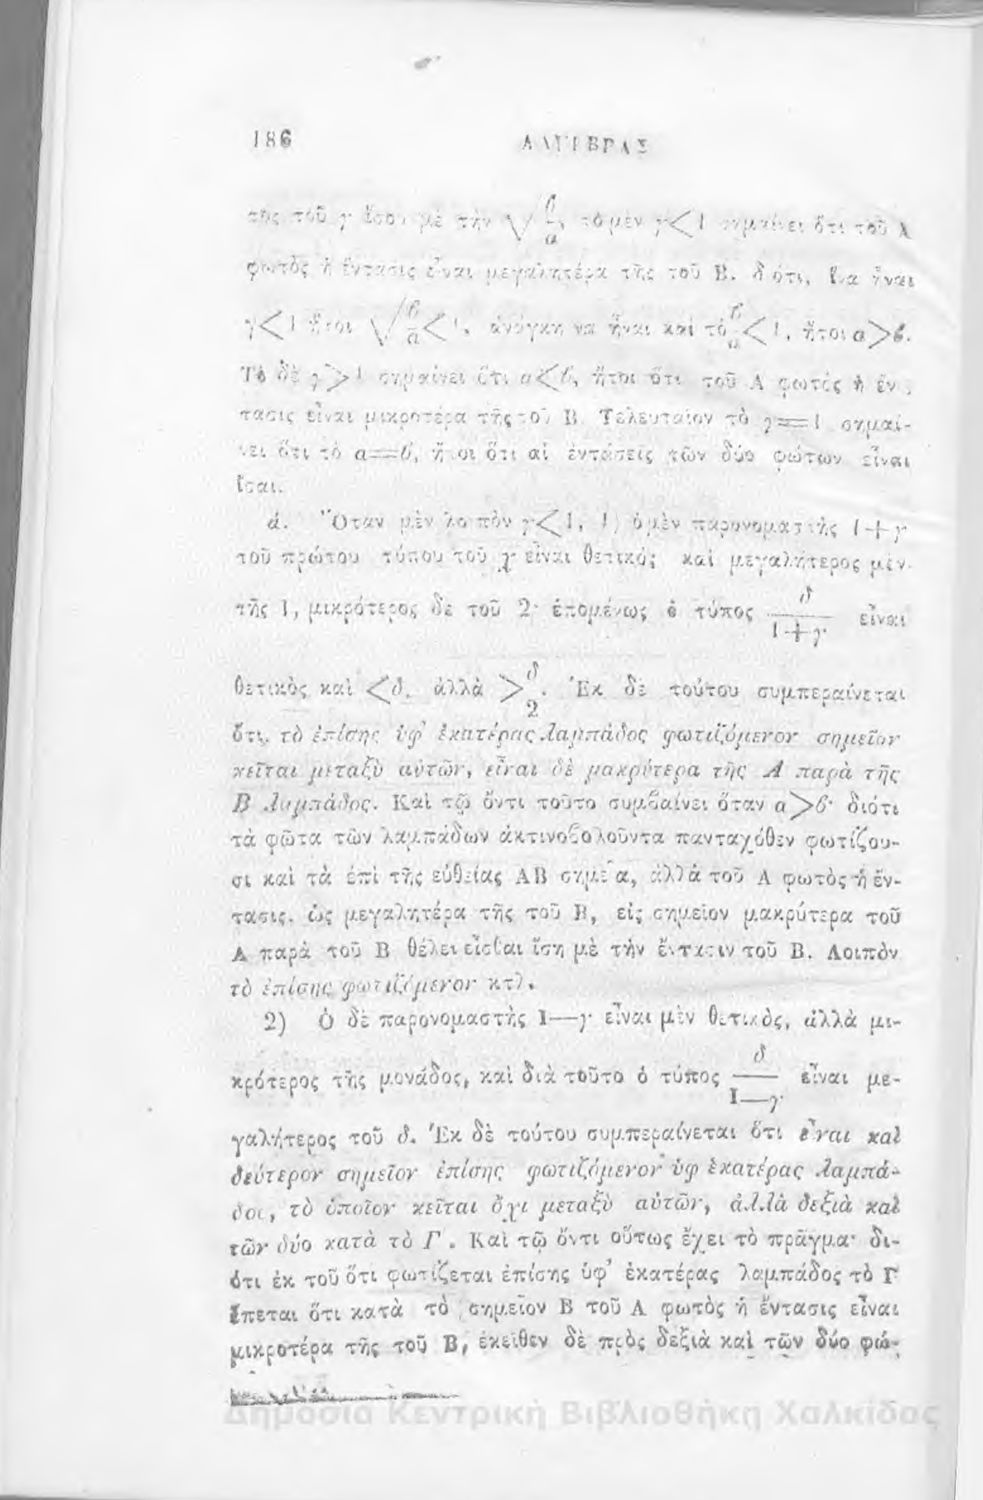 186 ΑΛΓΕΒΡΑΣ
τῆς τοῦ γ ἴσου μὲ τὴν √β/α, τὸ μὲν γ<1 σημαίνει ὅτι τοῦ Α
φωτὸς ἡ ἔντασις εἶναι μεγαλητέρα τῆς τοῦ Β. διότι, ἵνα ἦναι
γ<1 ἤτοι √β/α<1, ἀνάγκη να ἦναι καὶ τὸ β/α<1, ἤτοι α>β.
Τὸ δὲ γ>1 σημαίνει ὅτι α<β, ἤτοι ὅτι τοῦ Α φωτὸς ἡ ἔν-
τασις εἶναι μικροτέρα τῆς τοῦ Β. Τελευταῖον τὸ γ=1 σημαί-
νει ὅτι τὸ α=β, ἤτοι ὅτι αἱ ἐντάσεις τῶν δύο φώτων εἶναι
ἴσαι.
ά. Ὅταν μὲν λοιπὸν γ<1, 1) ὁ μὲν παρονομαστὴς 1+γ
τοῦ πρώτου τύπου τοῦ χ εἶναι θετικὸς καὶ μεγαλήτερος μὲν
τῆς 1, μικρότερος δὲ τοῦ 2· ἑπομένως ὁ τύπος δ/1+γ εἶναι
θετικὸς καὶ <δ, ἀλλὰ >δ/2. Ἐκ δὲ τούτου συμπεραίνεται
ὅτι, τὸ ἐπίσης ὑφ' ἑκατέρας λαμπάδος φωτιζόμενον σημεῖον
κεῖται μεταξὺ αὐτῶν, εἶναι δὲ μακρύτερα τῆς Α παρὰ τῆς
Β λαμπάδος. Καὶ τῷ ὄντι τοῦτο συμβαίνει ὅταν α>β· διότι
τὰ φῶτα τῶν λαμπάδων ἀκτινοβολοῦντα πανταχόθεν φωτίζου-
σι καὶ τὰ ἐπὶ τῆς εὐθείας ΑΒ σημεῖα, ἀλλὰ τοῦ Α φωτὸς ἡ ἔν-
τασις, ὡς μεγαλητέρα τῆς τοῦ Β, εἰς σημεῖον μακρύτερα τοῦ
Α παρὰ τοῦ Β θέλει εἶσθαι ἴση μὲ τὴν ἔντασιν τοῦ Β. Λοιπὸν
τὸ ἐπίσης φωτιζόμενον κτλ.
2) Ὁ δὲ παρονομαστὴς 1—γ εἶναι μὲν θετικὸς, ἀλλὰ μι-
κρότερος τῆς μονάδος, καὶ διὰ τοῦτο ὁ τύπος δ/1—γ εἶναι με-
γαλήτερος τοῦ δ. Ἐκ δὲ τούτου συμπεραίνεται ὅτι εἶναι καὶ
δεύτερον σημεῖον ἐπίσης φωτιζόμενον ὑφ ἑκατέρας λαμπά-
δος, τὸ ὁποῖον κεῖται ὄχι μεταξὺ αὐτῶν, ἀλλὰ δεξιὰ καὶ
τῶν δύο κατὰ τὸ Γ'. Καὶ τῷ ὄντι οὕτως ἔχει τὸ πρᾶγμα· δι-
ότι ἐκ τοῦ ὅτι φωτίζεται ἐπίσης ὑφ' ἑκατέρας λαμπάδος τὸ Γ
ἕπεται ὅτι κατὰ τὸ σημεῖον Β τοῦ Α φωτὸς ἡ ἔντασις εἶναι
μικροτέρα τῆς τοῦ Β, ἐκεῖθεν δὲ πρὸς δεξιὰ καὶ τῶν δύο φώ-
Δημόσια Κεντρική Βιβλιοθήκη Χαλκίδας